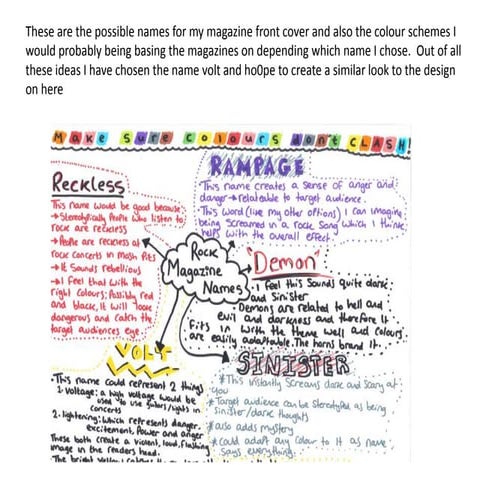 These are the possible names for my magazine front cover and also the colour schemes I
would probably being basing the magazines on depending which name I chose.  Out of all
these ideas I have chosen the name volt and ho0pe to create a similar look to the design
on here
Make sure colours don't CLASH!
Reckless
This name would be good because:
→ Stereotypically People who listen to
rock are reckless
→ People are reckless at
rock concerts in mosh pits
→ It Sounds rebellious
→ I feel that with the
right Colours; Possibly red
and black, it will look
dangerous and catch the
target audiences eye.
RAMPAGE
This name creates a sense of anger and
danger → relatable to target audience.
This word (like my other options) I can imagine
being screamed in a rock song which I think
helps with the overall effect.
Rock
Magazine
Names
'Demon'
I feel this Sounds quite dark
and Sinister
Demons are related to hell and
evil and darkness and therefore it
fits in with the theme well and colours
are easily adaptable. The horns brand it.
VOLT
This name could represent 2 things
1. Voltage: a high voltage would be
used to use guitars/lights in
concerts
2. lightening: which represents danger,
excitement, Power and anger
These both create a violent, loud, flashing
image in the readers head.
SINISTER
* This instantly Screams dark and Scary at
you
* Target audience can be Stereotyped as being
sinister/dark thoughts
* also adds mystery
* could adapt any colour to it as name
says everything.